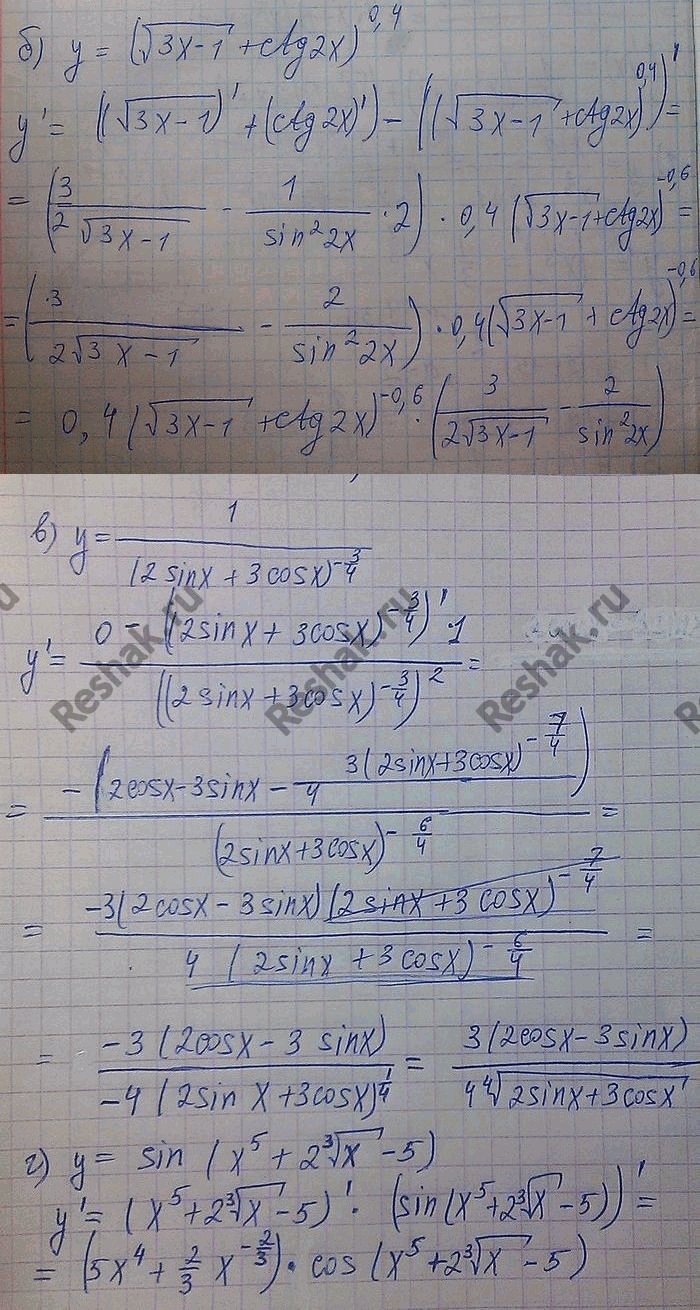 б) y = (√(3x-1) + ctg2x)^0,4
y' = ((√(3x-1))' + (ctg2x)') - ((√(3x-1) + ctg2x)^0,4)' =
= (3/(2√(3x-1)) - 1/(sin²2x) · 2) · 0,4 (√(3x-1) + ctg2x)^-0,6 =
= (·3/(2√(3x-1)) - 2/(sin²2x)) · 0,4(√(3x-1) + ctg2x)^-0,6 =
= 0,4 (√(3x-1) + ctg2x)^-0,6 · (3/(2√(3x-1)) - 2/(sin²2x))
в) y = 1/((2sinx + 3cosx)^-3/4)
y' = (0 - ((2sinx + 3cosx)^-3/4)' · 1)/(((2sinx + 3cosx)^-3/4)²) =
= -(2cosx - 3sinx - 3(2sinx + 3cosx)^-7/4 / 4)/((2sinx + 3cosx)^-6/4) =
= -3(2cosx - 3sinx)(2sinx + 3cosx)^-7/4 / (4(2sinx + 3cosx)^-6/4) =
= -3(2cosx - 3sinx)/(-4(2sinx + 3cosx)^1/4) = 3(2cosx - 3sinx)/(4 ⁴√(2sinx + 3cosx))
г) y = sin (x⁵ + 2∛x - 5)
y' = (x⁵ + 2∛x - 5)' · (sin(x⁵ + 2∛x - 5))' =
= (5x⁴ + 2/3 x^-2/3) · cos (x⁵ + 2∛x - 5)
Reshak.ru
Reshak.ru
Reshak.ru